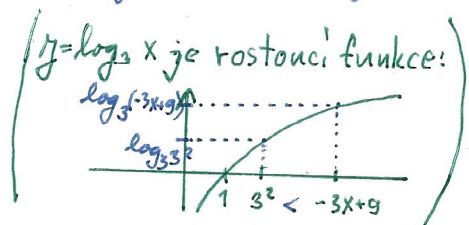 (y=log₃ x je rostoucí funkce:
log₃(-3x+9)
log₃3²
1 3² < -3x+9)